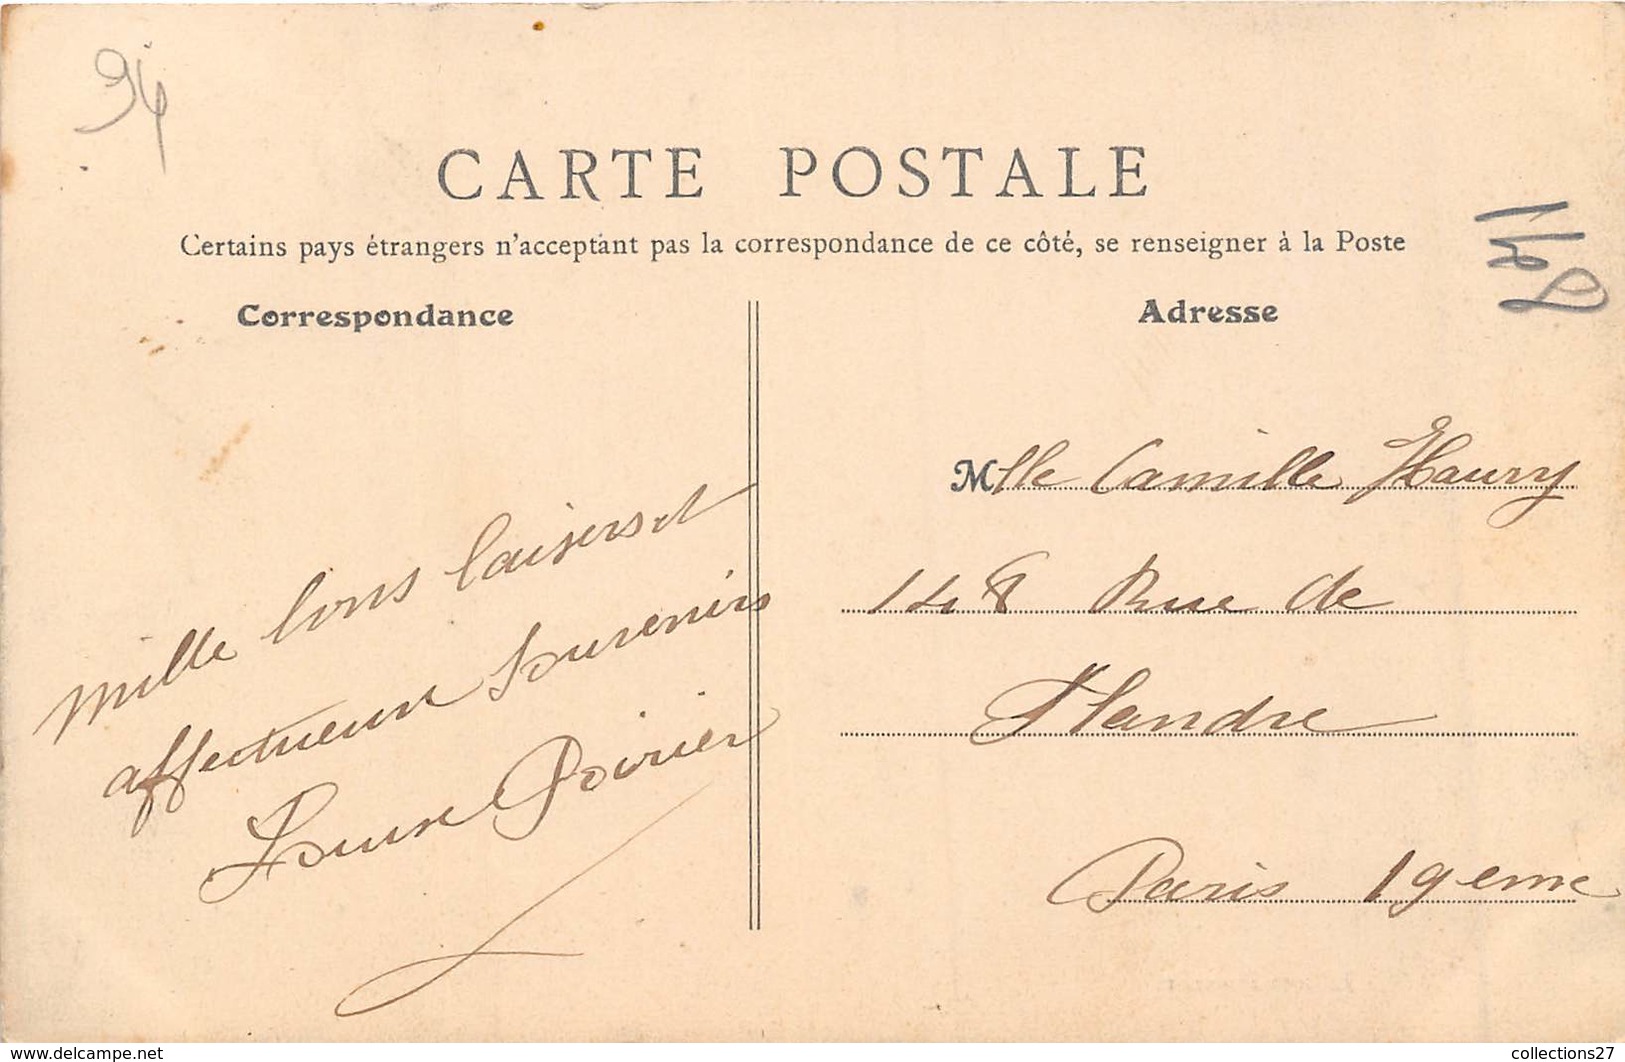 94
CARTE POSTALE
148
Certains pays étrangers n'acceptant pas la correspondance de ce côté, se renseigner à la Poste
Correspondance
mille bons baisers et
affectueux souvenirs
Poirier
Adresse
Mlle Camille Haury
148 Rue de
Flandre
Paris 19eme
http://www.delcampe.net
collections27